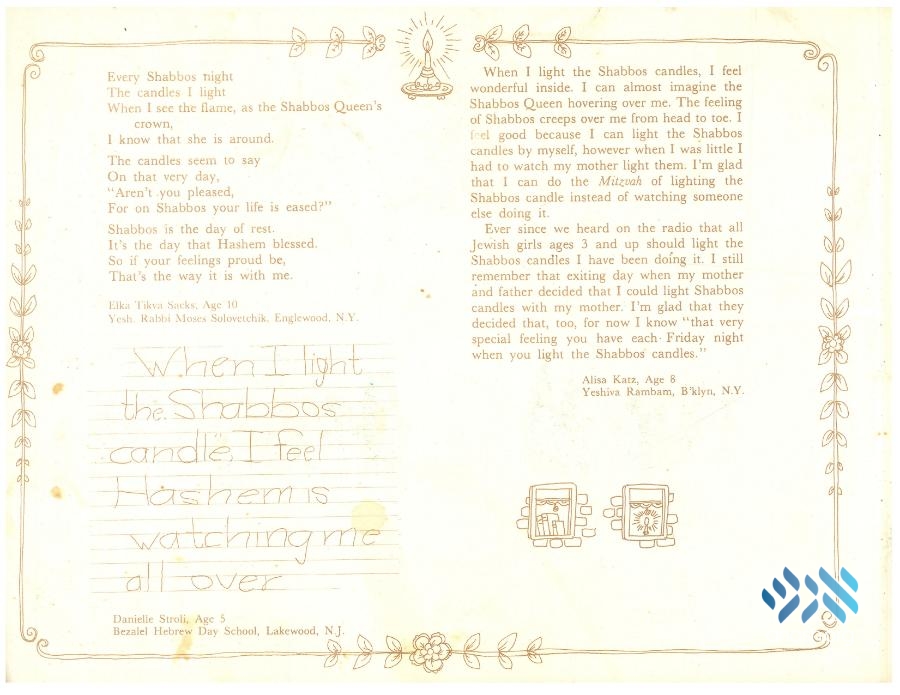 Every Shabbos night
The candles I light
When I see the flame, as the Shabbos Queen's
crown,
I know that she is around.
The candles seem to say
On that very day,
"Aren't you pleased,
For on Shabbos your life is eased?"
Shabbos is the day of rest.
It's the day that Hashem blessed.
So if your feelings proud be,
That's the way it is with me.
Elka Tikva Sacks, Age 10
Yesh. Rabbi Moses Solovetchik, Englewood, N.Y.
When I light
the Shabbos
candle, I feel
Hashem is
watching me
all over
Danielle Stroli, Age 5
Bezalel Hebrew Day School, Lakewood, N.J.
When I light the Shabbos candles, I feel
wonderful inside. I can almost imagine the
Shabbos Queen hovering over me. The feeling
of Shabbos creeps over me from head to toe. I
feel good because I can light the Shabbos
candles by myself, however when I was little I
had to watch my mother light them. I'm glad
that I can do the Mitzvah of lighting the
Shabbos candle instead of watching someone
else doing it.
Ever since we heard on the radio that all
Jewish girls ages 3 and up should light the
Shabbos candles I have been doing it. I still
remember that exiting day when my mother
and father decided that I could light Shabbos
candles with my mother. I'm glad that they
decided that, too, for now I know "that very
special feeling you have each Friday night
when you light the Shabbos candles."
Alisa Katz, Age 8
Yeshiva Rambam, B'klyn, N.Y.